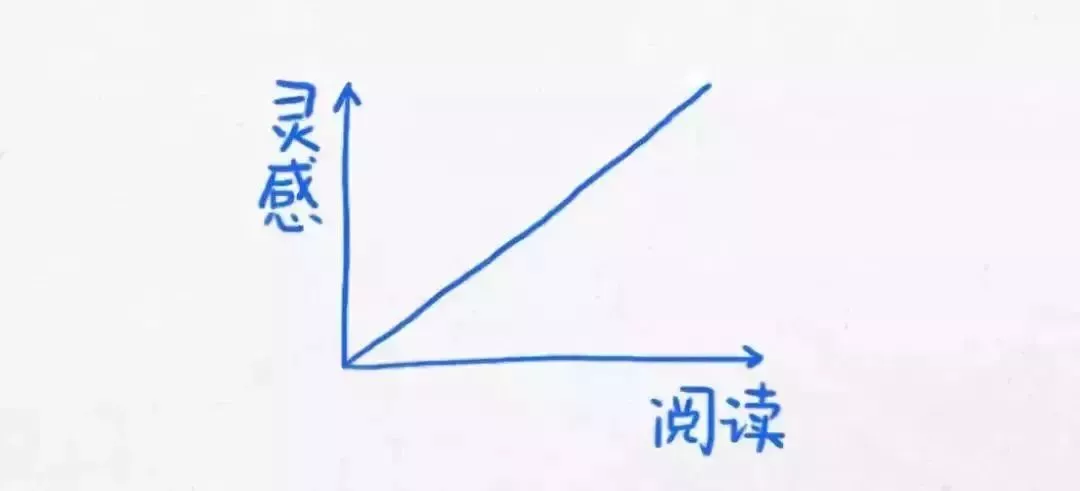 灵感
阅读